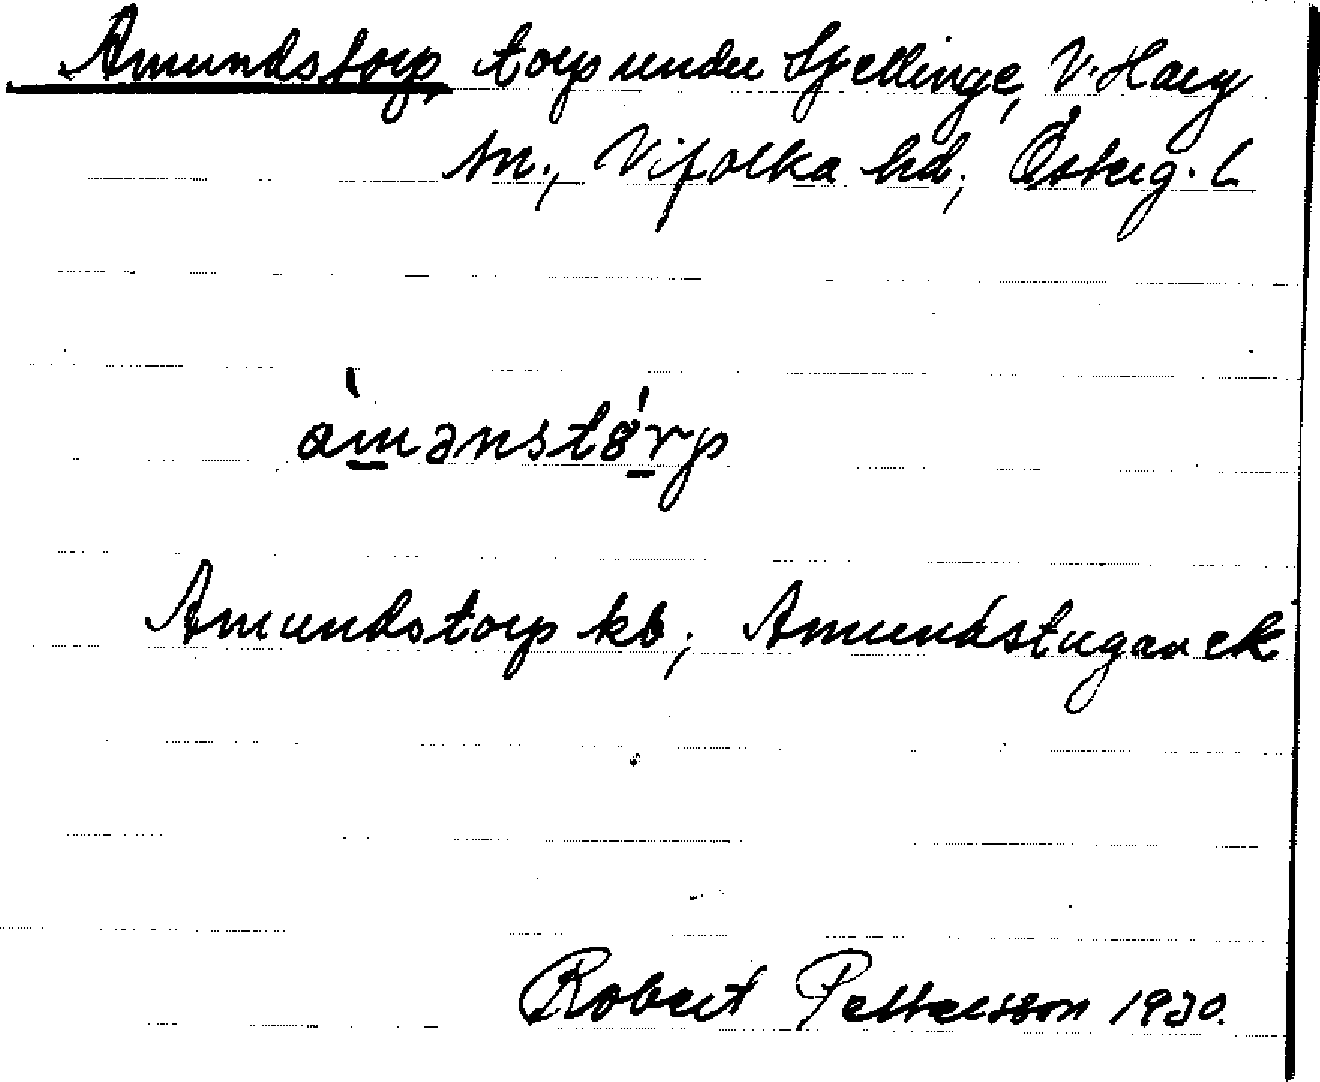 Amundstorp, torp under Spellinge, V. Harg
sn., Vifolka hd, Österg. l
àmənstó̤rp
Amundstorp kb; Amundstugan ek
Robert Pettersson 1930.